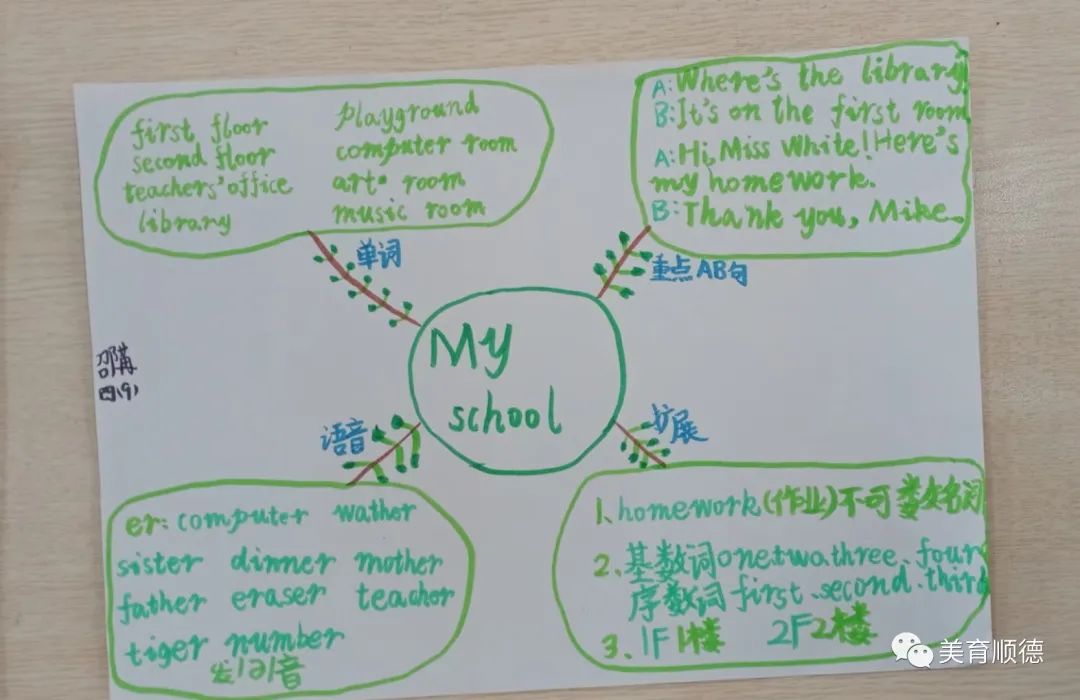 first floor
second floor
teachers' office
library
playground
computer room
art room
music room
单词
A: Where's the library
B: It's on the first room
A: Hi, Miss White! Here's
my homework.
B: Thank you, Mike.
重点AB句
My
school
四(9)
语音
er: computer wather
sister dinner mother
father eraser teachor
tiger number
发/ə/音
扩展
1. homework(作业)不可数名词
2. 基数词one two three、four
序数词 first、second、third
3. 1F 1楼 2F 2楼
美育顺德